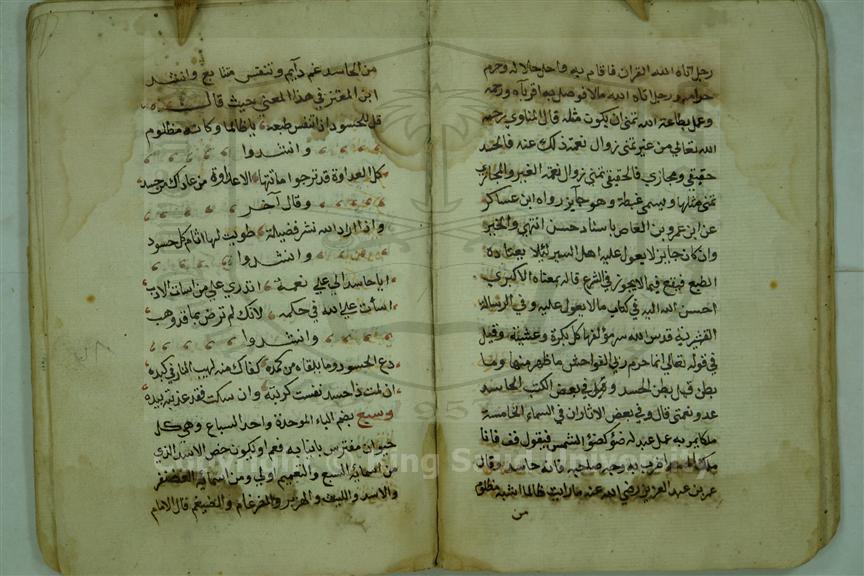 رجل اتاه الله القران فاقام به واحل حلاله وحرم
حرامه ورجل اتاه الله مالا فوصل به اقرباه ورحمه
وعمل بطاعة الله تمنى ان يكون مثله قال المناوي رحمه
الله تعالى من غير تمنى زوال نعمة ذلك عنه فالحسد
حقيقي ومجازي فالحقيقي تمنى زوال نعمة الغير والمجازي
تمنى مثلها ويسمى غبطة وهو جايز رواه ابن عساكر
عن ابن عمرو بن العاص باسناد حسن انتهى والخبر
وان كان جايز لا يعول عليه اهل السير ليلا يعتاده
الطبع فيقع فيما لا يجوز في الشرع قاله بمعناه الاكبري
احسن الله اليه في كتاب ما لا يعول عليه وفي الرسالة
القشيرية قدس الله سر مؤلفها كل بكرة وعشية وقيل
في قوله تعالى انما حرم ربي الفواحش ما ظهر منها وما
بطن قيل بطن الحسد و في بعض الكتب الحاسد
عدو نعمتي قال وفي بعض الاثار ان في السماء الخامسة
ملكا يمر به عمل عبد له ضؤ كضؤ الشمس فيقول قف فانا
ملك الحسد اضرب به وجه صاحبه فانه حاسد وقال
عمر بن عبد العزيز رضي الله عنه ما رايت ظالما اشبه بمظلوم
من
من الحاسد غم دايم ونفس متتابع وانشد
ابن المعتز في هذا المعنى حيث قال
قل للحسود اذا تنفس طبعة يا ظالما وكانه مظلوم
وانشدوا
كل العداوة قد ترجوا ماتتها الا عداوة من عاداك من حسد
وقال آخر
واذا اراد الله نشر فضيلة طويت لها اتاح كل حسود
وانشدوا
ايا حاسد الي على نعمة اتدري على من اسات الادب
اسأت على الله في حكمه لانك لم ترض بما قد وهب
وانشدوا
دع الحسود وما يلقاه من كمده كفاك منه لهيب النار في كبده
ان لمت ذا حسد نفست كربته وان سكت فقد عذبته بيده
وسبع بضم الباء الموحدة واحد السباع وهي كل
حيوان مفترس بانيابه فعم او يكون خص الاسد الذي
من اسمايه السبع والتعميم اولى ومن اسمايه الغضنفر
والاسد والليث والهزبر والضرغام والضيغم قال الامام